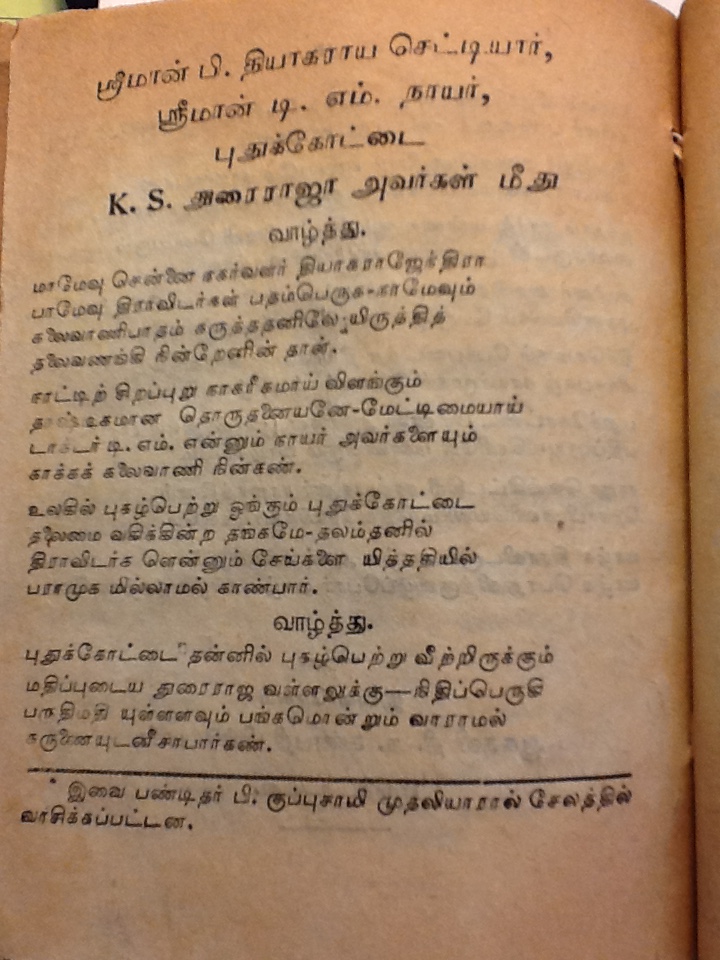 ஸ்ரீமான் பி. தியாகராய செட்டியார்,
ஸ்ரீமான் டி. எம். நாயர்,
புதுக்கோட்டை
K. S. துரைராஜா அவர்கள் மீது
வாழ்த்து.
மாமேவு சென்னை நகர்வளர் தியாகராஜேந்திரா
பாமேவு திராவிடர்கள் பதம்பெருக-நாமேவும்
கலைவாணிபாதம் கருத்ததனிலே யிருத்தித்
தலைவணங்கி நின்றேனின் தாள்.
நாட்டிற் சிறப்புறு நாகரீகமாய் விளங்கும்
தொருதனையனே-மேட்டிமையாய்
டாக்டர் டி. எம். என்னும் நாயர் அவர்களையும்
காக்கக் கலைவாணி நின்கண்.
உலகில் புகழ்பெற்று ஓங்கும் புதுக்கோட்டை
தலைமை வகிக்கின்ற தங்கமே-தலம்தனில்
திராவிடர்க ளென்னும் சேய்களை யித்ததியில்
பராமுக மில்லாமல் காண்பார்.
வாழ்த்து.
புதுக்கோட்டை தன்னில் புகழ்பெற்று வீற்றிருக்கும்
மதிப்புடைய துரைராஜ வள்ளலுக்கு—நிதிப்பெருகி
பருதிமதி யுள்ளளவும் பங்கமொன்றும் வாராமல்
கருணையுடனீசாபார்கண்.
இவை பண்டிதர் பி. குப்புசாமி முதலியாரால் சேலத்தில்
வாசிக்கப்பட்டன.